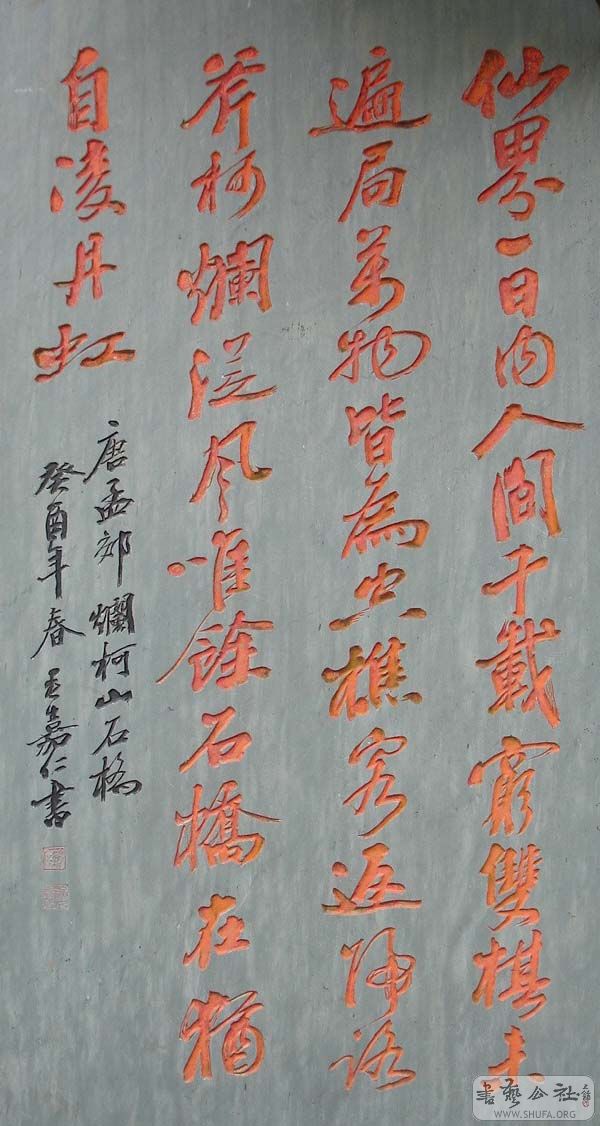 仙界一日内人間千載窮雙棋未
遍局萬物皆為空樵客返歸路
斧柯爛從风唯餘石橋在猶
自凌丹虹
唐孟郊爛柯山石橋
癸酉年春王嘉仁書
書藝公社
WWW.SHUFA.ORG